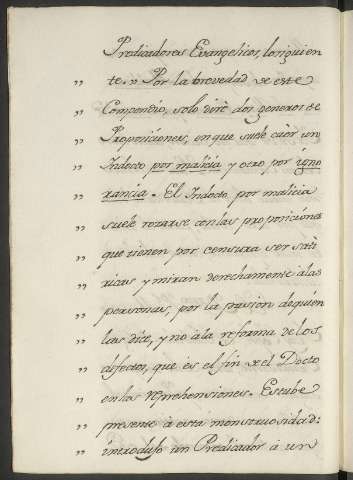 Predicadores Evangelicos, lo siguien
te. " Por la brevedad de este
" Compendio, solo diré dos generos de
" Proposiciones, en que suele caèr un
" Indocto por malicia y otro por igno
" rancia. El Indocto por malicia
" suele rozarse con las proposiciones
" que tienen por censura ser satí
" ricas y miran derechamente à las
" personas, por la pasion de quien
" las dice, y no à la reforma de los
" defectos, que es el fin de el Docto
" en las reprehensiones. Estube
" presente à esta monstruosidad:
" introdujo un Predicador à un